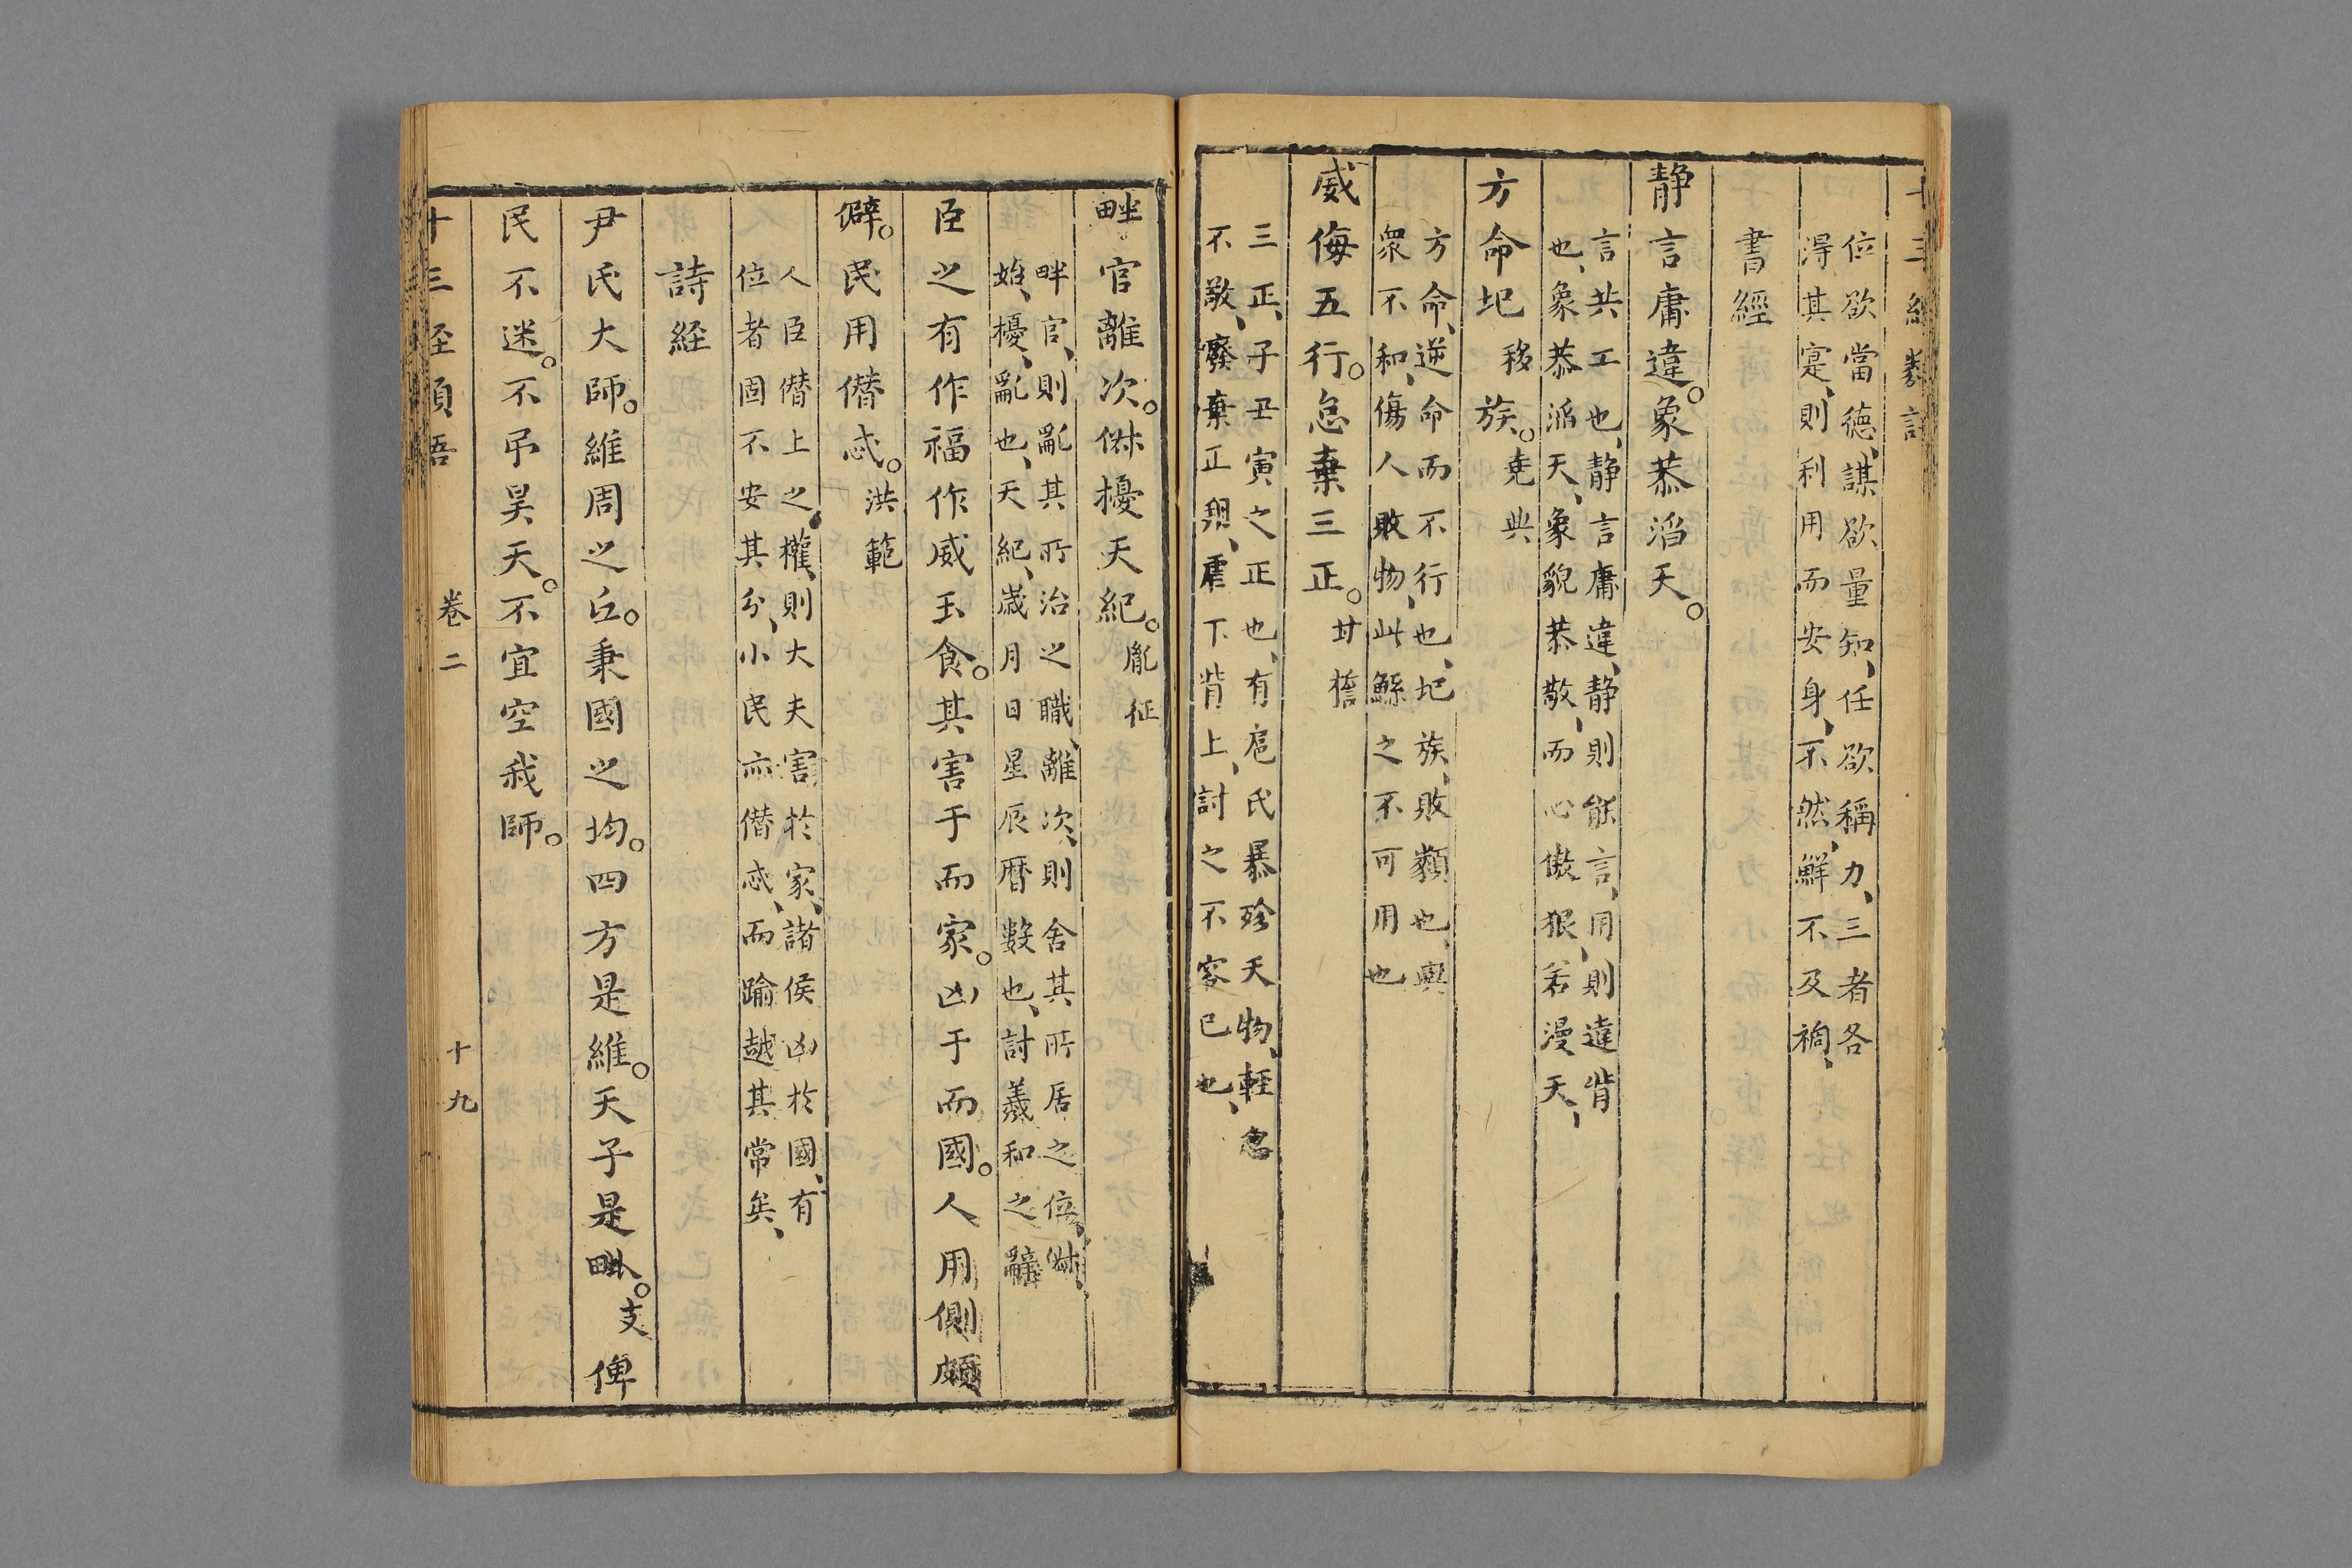 十三經類語
位欲當德、謀欲量知、任欲稱力、三者各
得其寔、則利用而安身、不然、鮮不及禍、
書經
静言庸違。象恭滔天。
言共工也、静言庸違、静則能言、用則違背
也、象恭滔天、象貌恭敬、而心傲狠若漫天、
方命圮移族。堯典
方命、逆命而不行也、圮族、敗類也、與
衆不和、傷人敗物、此鯀之不可用也
威侮五行。怠棄三正。甘誓
三正、子丑寅之正也、有扈氏暴殄天物、輕忽
不敬、廢棄正朔、虐下背上、討之不容已也、
畔官離次。俶擾天紀。胤征
畔官、則亂其所治之職、離次、則舍其所居之位、俶、
始、擾、亂也、天紀、歲月日星辰曆數也、討羲和之辭
臣之有作福作威玉食。其害于而家。凶于而國。人用側頗
僻。民用僭忒。洪範
人臣僭上之權、則大夫害於家、諸侯凶於國、有
位者固不安其分、小民亦僭忒、而踰越其常矣、
詩経
尹氏大師。維周之氐。秉國之均。四方是維。天子是毗。支俾
民不迷。不弔昊天。不宜空我師。
卷二 十九